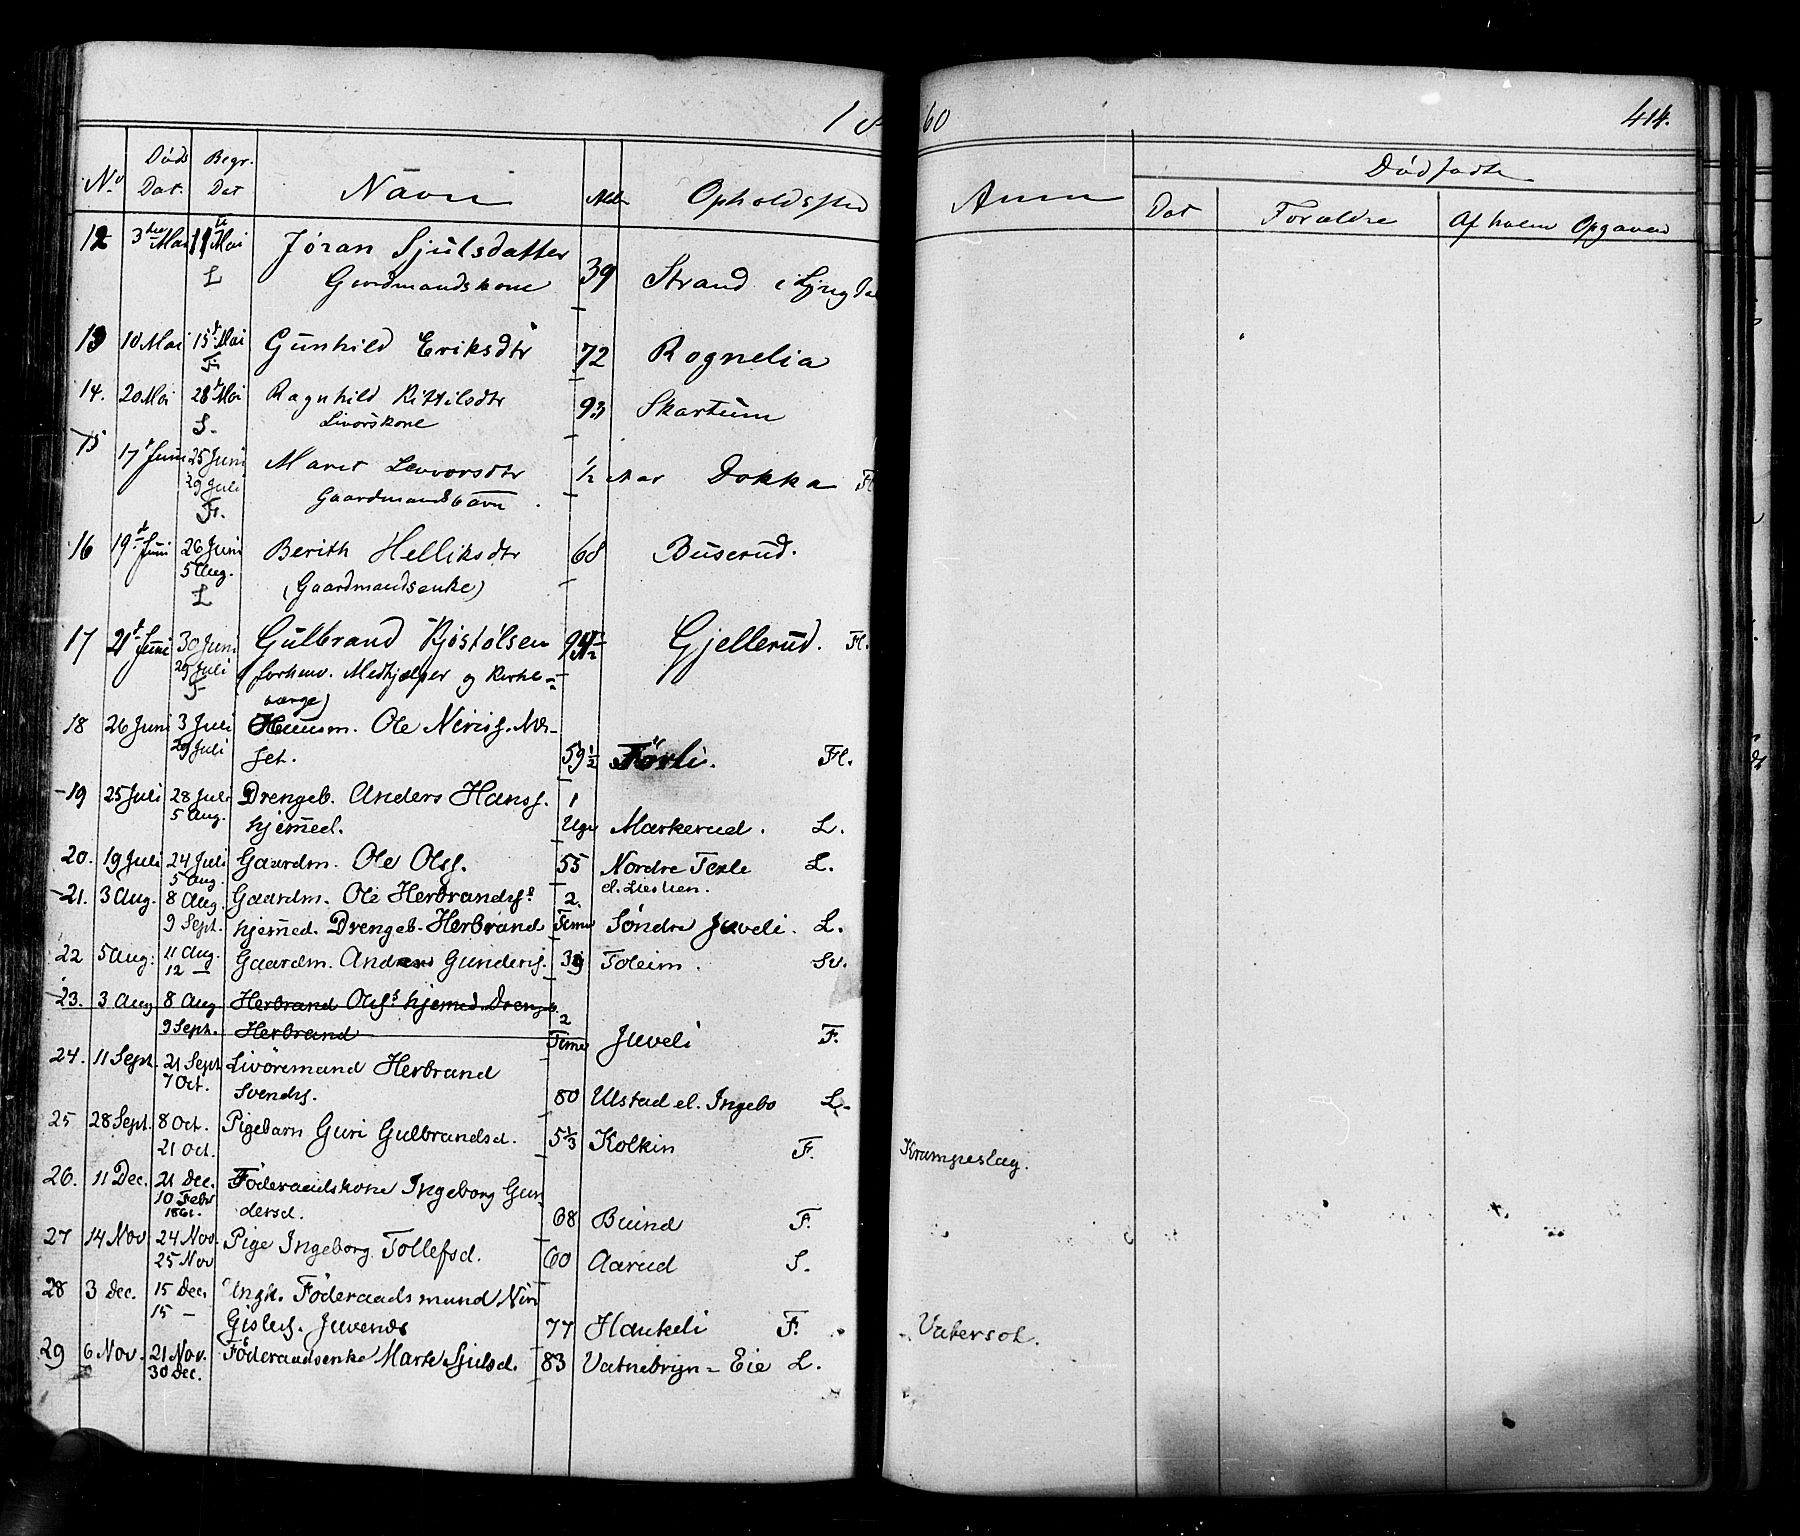 18
60
414.
No
Døds Dat.
Begr. Dat
Navn
Alder
Opholdssted
Anm
Dødfødte
Dat
Forældre
Af hvem Opgaven
12 3die Mai 11te Mai Jöran Sjulsdatter
L Gaardmandskone 39 Strand i Lyngdal
13 10 Mai 15de Mai Gunhild Eriksdtr 72 Rognelia
F.
14. 20 Mai 28de Mai Ragnhild Kittilsdtr 93 Skartum
S. Livørskone
15 17de Juni 25 Juni Marit Levvorsdtr ½ Aar Dokka Fl
29 Juli Gaardmandsbarn.
Fl.
16 19de Juni 26 Juni Berith Helliksdtr 68 Buserud.
5 Aug. (Gaardmandsenke)
L
17 21de Juni 30 Juni Gulbrand Kjöstölsen 94½ Gjellerud. Fl.
29 Juli (forhenv. Medhjælper og Kirke-
F værge)
18 26 Juni 3 Juli Huusm. Ole Nirisf.
29 Juli set. 59½ Förli. Fl.
19 25 Juli 28 Juli Drengeb. Anders Hansf. 1
5 Aug. hjemed. Uge Markerud. L.
20. 19 Juli 24 Juli Gaardm. Ole Olsf. 55 Nordre Texle L.
5 Aug. el. Liestien.
21. 3 Aug. 8 Aug. Gaardm. Ole Herbrandsf.s 2.
9 Sept. hjemed. Drengeb. Herbrand Timer Søndre Juveli. L.
22 5 Aug. 11 Aug. Gaardm. Anders Gundersf. 39 Toleim. Sv.
12 —
23. 3 Aug 8 Aug Herbrand Olsf.s hjemed Drengeb. 2
9 Sept. Herbrand Timer Juveli F.
24. 11 Sept. 21 Sept Livöremand Herbrand
7 Oct. Svendsf. 80 Ulstad el. Ingebo L.
25 28 Sept. 8 Oct. Pigebarn Guri Gulbrandsd. 5⅓ Kolkin F. Krampeslag.
21 Oct.
26. 11 Dec. 21 Dec. Föderaadskone Ingeborg Gun-
10 Febr 1861. dersd. 68 Buind F.
27 14 Nov 24 Nov. Pige Ingeborg Tollefsd. 60 Aarud S.
25 Nov
28 3 Dec. 15 Dec. Ungk. Föderaadsmand Niri
15 — Gislesf. Juvends 77 Haukeli F. Vatersot.
29 6 Nov. 21 Nov. Föderaadsenke Marte Sjulsd. 83 Vatnebryn-Eie L.
30 Dec.